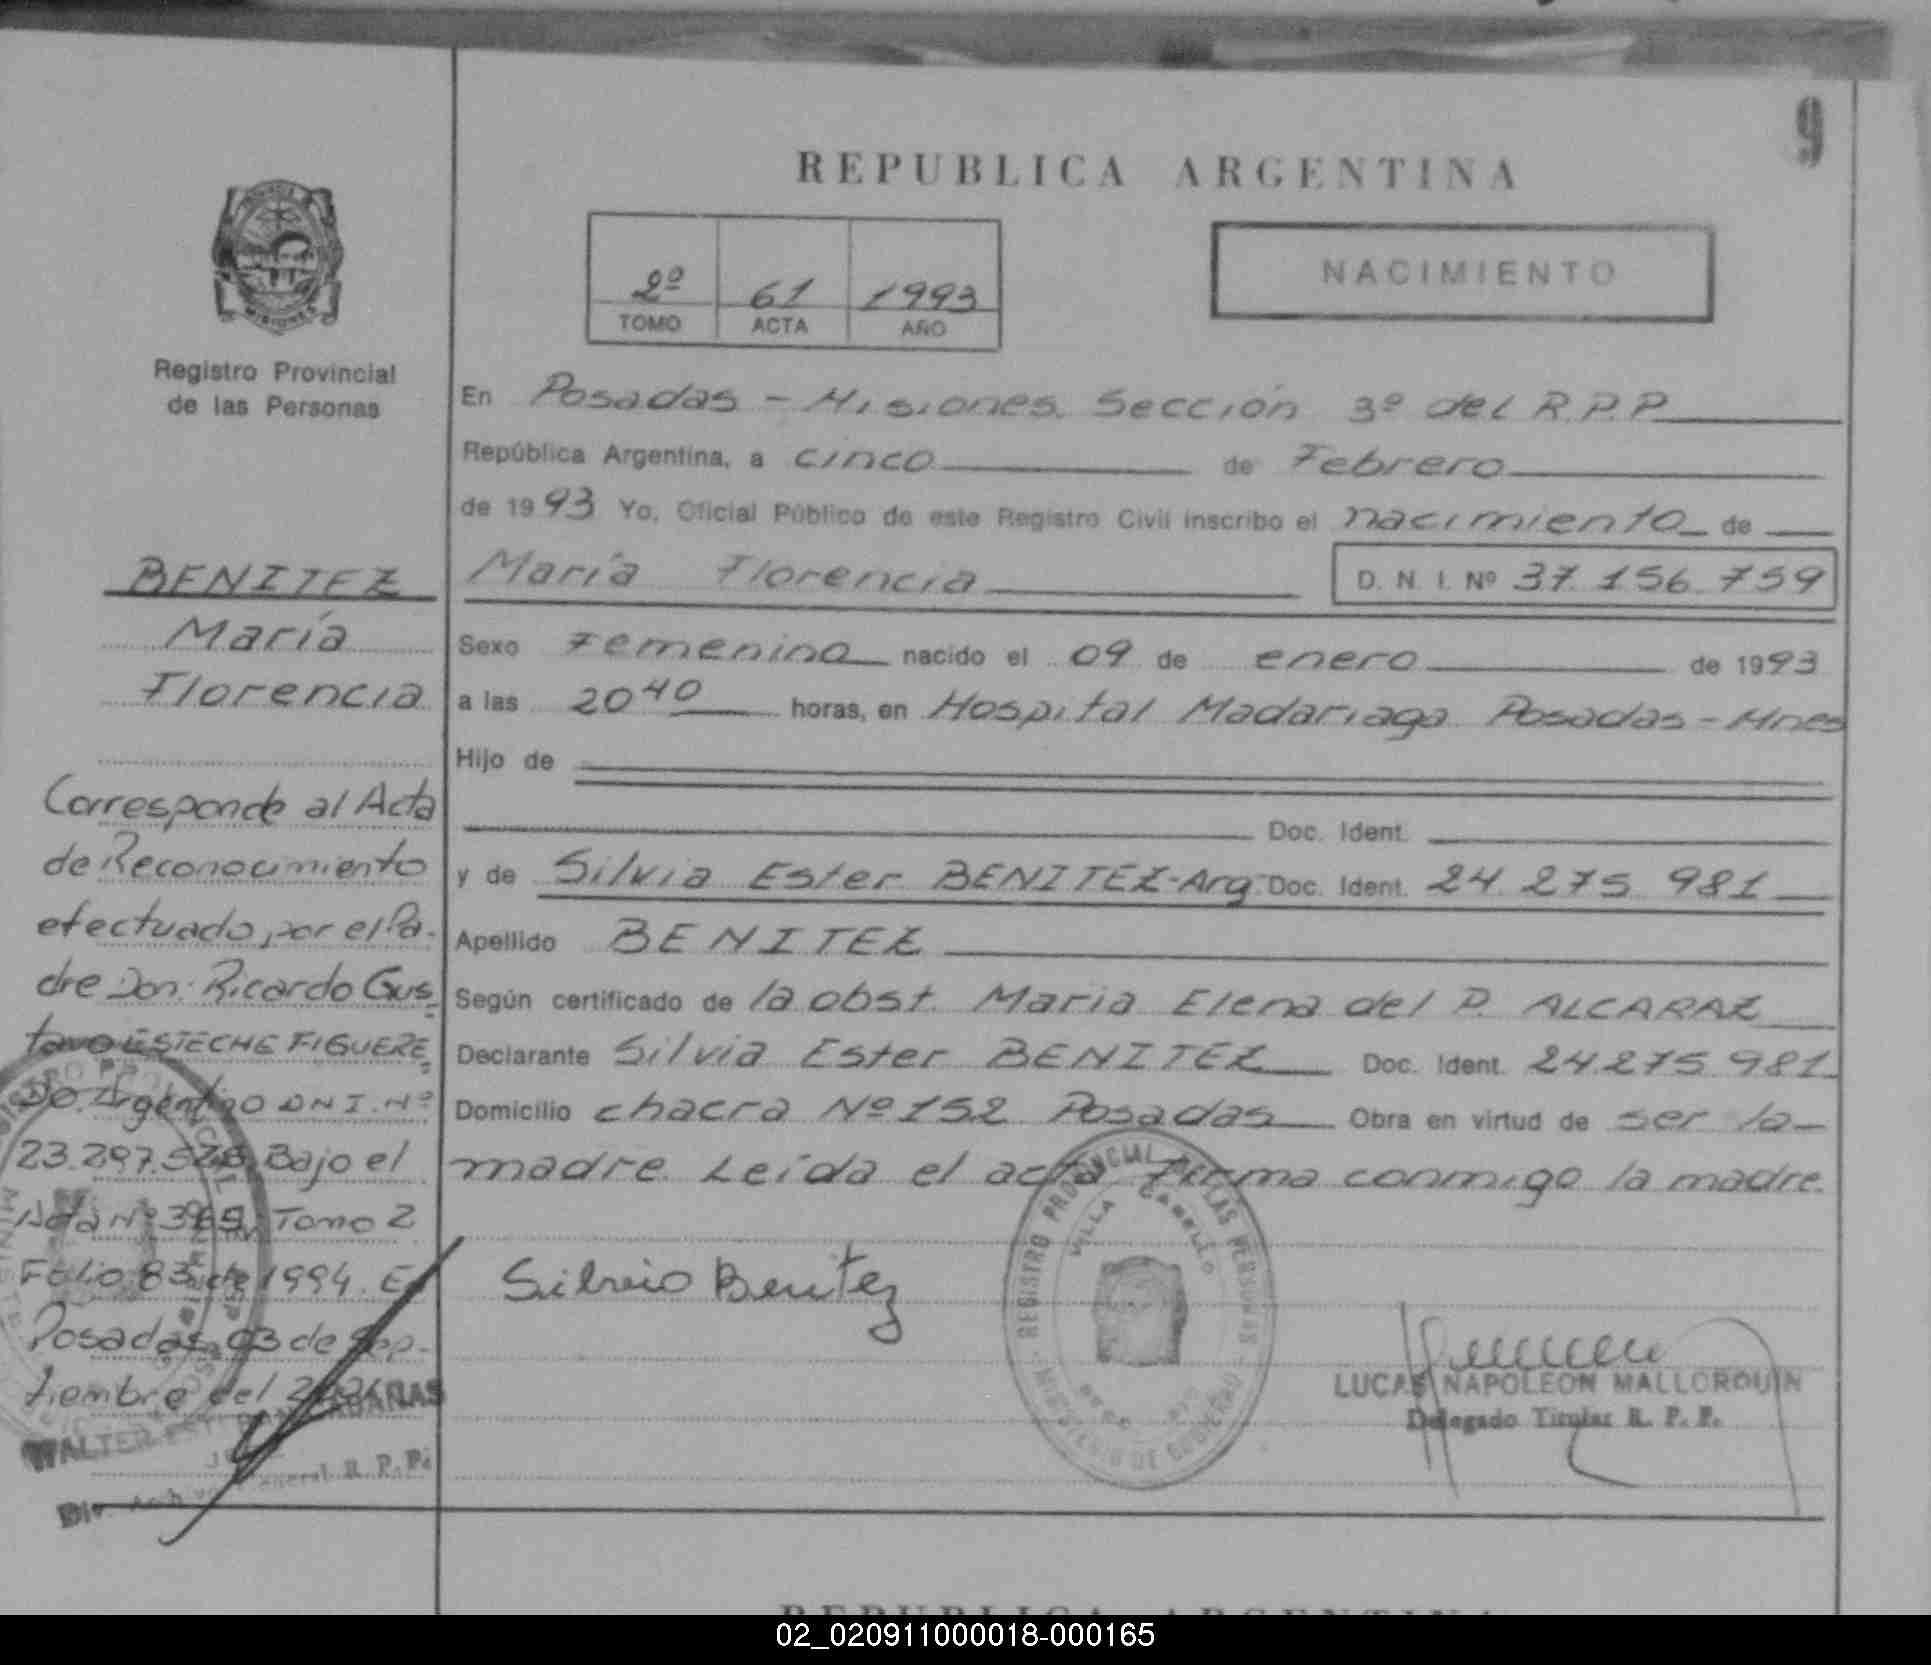 9
REPUBLICA ARGENTINA
2º 61 1993
TOMO ACTA AÑO
NACIMIENTO
MISIONES
Registro Provincial
de las Personas
En Posadas - Misiones. Sección 3º del R.P.P.
República Argentina, a cinco de Febrero
de 1993 Yo, Oficial Público de este Registro Civil inscribo el nacimiento de
María Florencia D. N. I. Nº 37.156.759
Sexo Femenino nacido el 09 de enero de 1993
a las 20 40 horas, en Hospital Madariaga Posadas - Mnes
Hijo de
Doc. Ident.
y de Silvia Ester BENITEZ-Arg. Doc. Ident. 24.275.981
Apellido BENITEZ
Según certificado de la obst. Maria Elena del P. ALCARAZ
Declarante Silvia Ester BENITEZ Doc. Ident. 24.275.981
Domicilio chacra Nº 152 Posadas Obra en virtud de ser la
madre. Leída el acta firma conmigo la madre.
Silvia Benitez
REGISTRO PROVINCIAL DE LAS PERSONAS
VILLA CABELLO
MINISTERIO DE GOBIERNO
LUCAS NAPOLEON MALLORQUIN
Delegado Titular R. P. P.
BENITEZ
María
Florencia
Corresponde al Acta
de Reconocimiento
efectuado, por el Pa-
dre Don: Ricardo Gus=
tavo ESTECHE FIGUERE=
DO. Argentino DNI. Nº
23.297.528, Bajo el
Acta Nº Tomo 2
Folio 83 de 1994. En
Posadas, 03 de Sep-
tiembre del
WALTER
General R. P. P.
REPUBLICA ARGENTINA
02_020911000018-000165